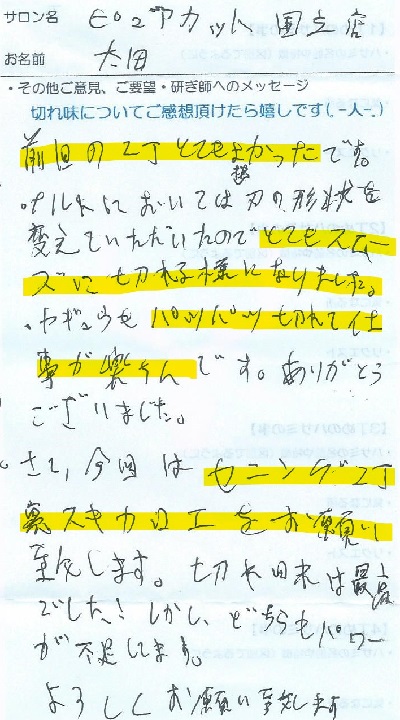 サロン名 EO2ﾞアカット 国立店
お名前 太田
・その他ご意見、ご要望・研ぎ師へのメッセージ
切れ味についてご感想頂けたら嬉しです(.-人-.)
前回の2丁とてもよかったです。
・ナルトにおいては刃の形状を
変えていただいたのでとてもスムー
ズに切れる様になりました。
・ヤギュウもパッツパツ切れて仕
事が楽ちんです。ありがとう
ございました。
さて、今回はセニング2丁
裏スキカロエをお願い
至反します。切れ 日来は最高
でした!しかし、どちらもパワー
が不足してます。
よろしくお願い至致します